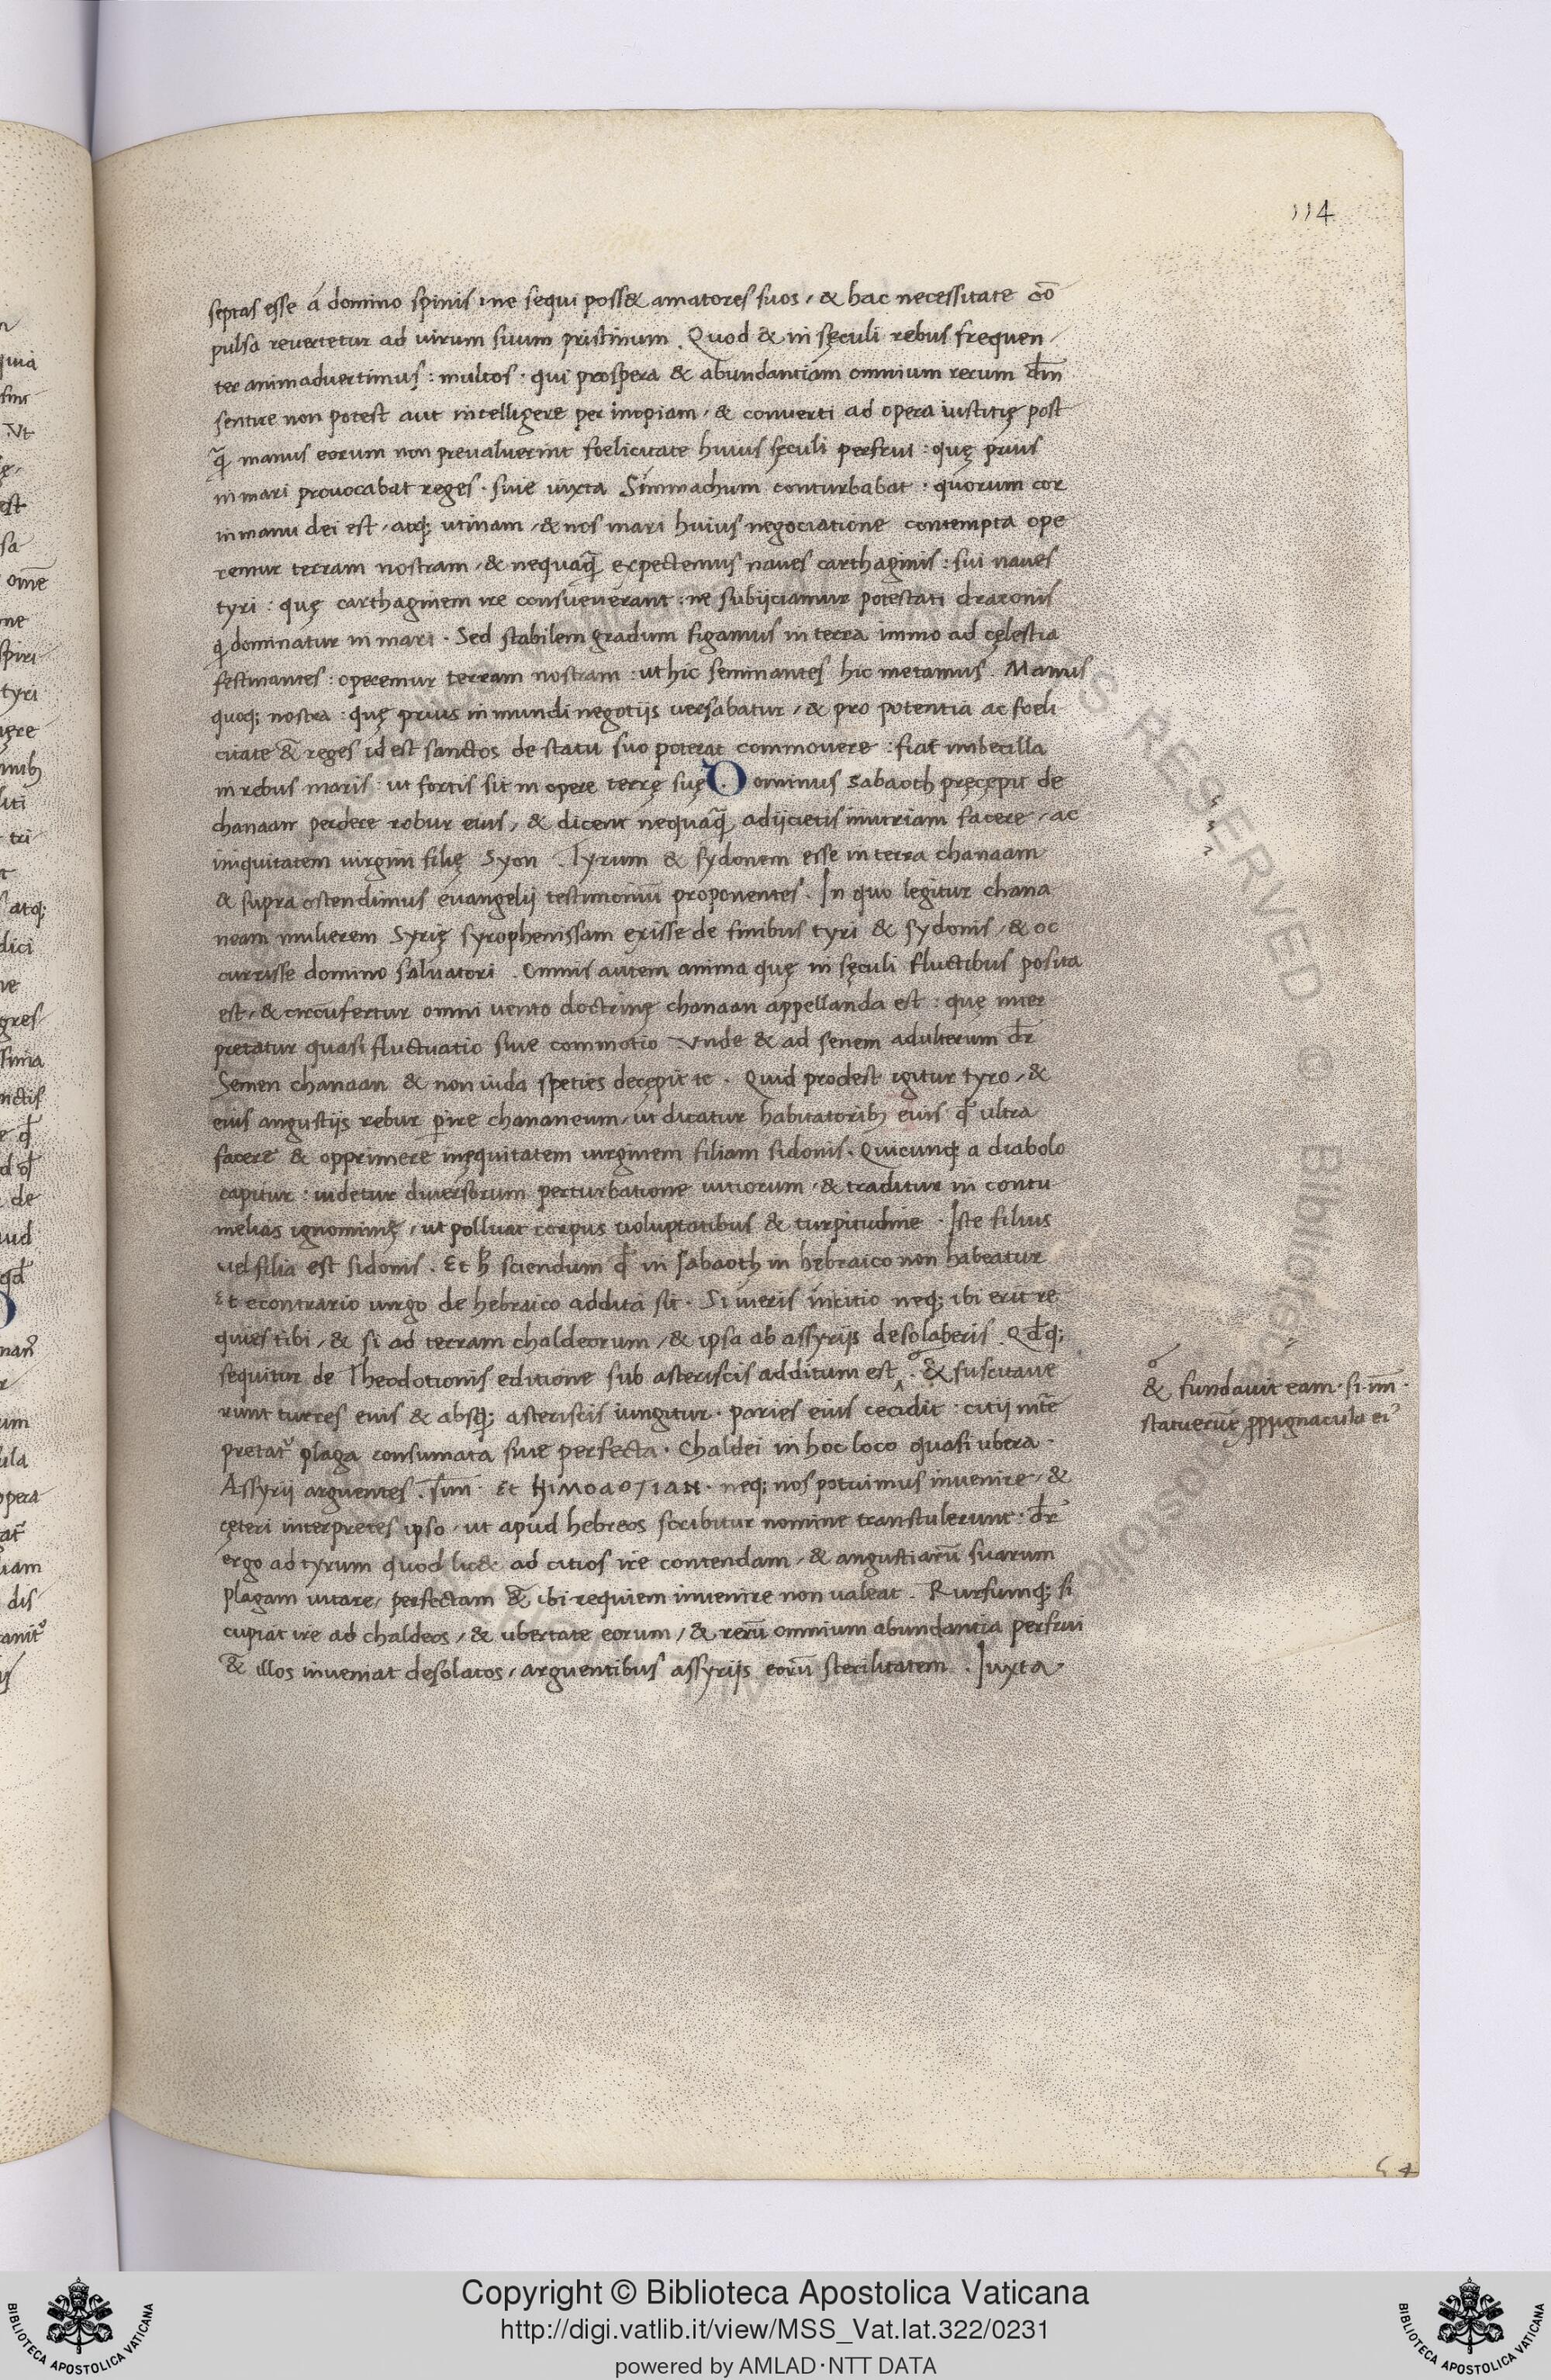 114
septas esse a domino spinis : ne sequi poss& amatores suos / & hac necessitate cō
pulsa revertetur ad virum suum pristinum . Quod & in sęculi rebus frequen /
ter animadvertimus : multos · qui prospera & abundantiam omnium rerum dn̄m
sentire non potest aut intelligere per inopiam / & converti ad opera iustitię post
q̄ manus eorum non prevaluerint foelicitate huius sęculi perfrui : quę prius
in mari provocabat reges · sive iuxta Simmachum conturbabat : quorum cor
in manu dei est / atq; utinam / & nos mari huius negociatione contempta ope
remur terram nostram / & nequaq̄ expectemus naves carthaginis : sui naves
tyri : quę carthaginem ire consueverant : ne subijciamur potestati draconis
q dominatur in mari · Sed stabilem gradum figamus in terra immo ad cęlestia
festinantes : operemur terram nostram : ut hic seminantes hic metamus . Manus
quoq; nostra : quę prius in mundi negotijs versabatur / & pro potentia ac foeli
citate &̄ reges id est sanctos de statu suo poterat commovere : fiat imbecilla
in rebus maris : ut fortis sit in opere terrę suę . Dominus sabaoth pręcepit de
chanaan perdere robur eius / & dicent nequaq̄ adijcietis iniuriam facere / ac
iniquitatem virgini filię Syon . Tyrum & sydonem esse in terra chanaam
& supra ostendimus evangelij testimoniū proponentes . In quo legitur chana
neam mulierem Syrię syrophenissam exisse de finibus tyri & sydonis / & oc
currisse domino salvatori . Omnis autem anima quę in sęculi fluctibus posita
est / & circūfertur omni vento doctrinę chanaan appellanda est : quę inter
pretatur quasi fluctuatio sive commotio Unde & ad senem adulterum dr̄
Semen chanaan & non iuda speties decępit te . Quid prodest igitur tyro / &
eius angustijs rebur pire chananeum / ut dicatur habitatorib; eius q̄ ultra
facere & opprimere inęquitatem virginem filiam sidonis . Quicunq; a diabolo
capitur : videtur diversorum perturbatione vitiorum / & traditur in contu
melias ignominię / ut polluat corpus voluptatibus & turpitudine . Iste filius
vel filia est sidonis . Et h̄ sciendum q̄ in sabaoth in hebraico non habeatur
Et econtrario virgo de hebraico addita sit . Si ieris in citio neq; ibi erit re
quies tibi / & si ad terram chaldeorum / & ipsa ab assyrijs desolaberis . Qd̄q;
sequitur de Theodotionis editione sub asteriscis additum est . & suscitave
runt turres eius & absq; asteriscis iungitur . paries eius cecidit : citij int̄e
pretat plaga consumata sive perfecta . Chaldei in hoc loco quasi ubera ·
Assyrij arguentes . sim̄ · Et neq; nos potuimus invenire / &
cęteri interpretes ipso / ut apud hebreos scribitur nomine transtulerunt · dr̄
ergo ad tyrum quod lic& ad citios ire contendam / & angustiarū suarum
plagam vitare / perfectam &̄ ibi requiem invenire non valeat . Rursumq; si
cupiat ire ad chaldeos / & ubertate eorum / & rerū omnium abundantia perfrui
&̄ illos inveniat desolatos / arguentibus assyrijs eorū sterilitatem . Iuxta
& fundavit eam · si · īm ·
statuerūt ppugnacula ei
Copyright © Biblioteca Apostolica Vaticana
http://digi.vatlib.it/view/MSS_Vat.lat.322/0231
powered by AMLAD·NTT DATA
BIBLIOTECA APOSTOLICA VATICANA
BIBLIOTECA APOSTOLICA VATICANA